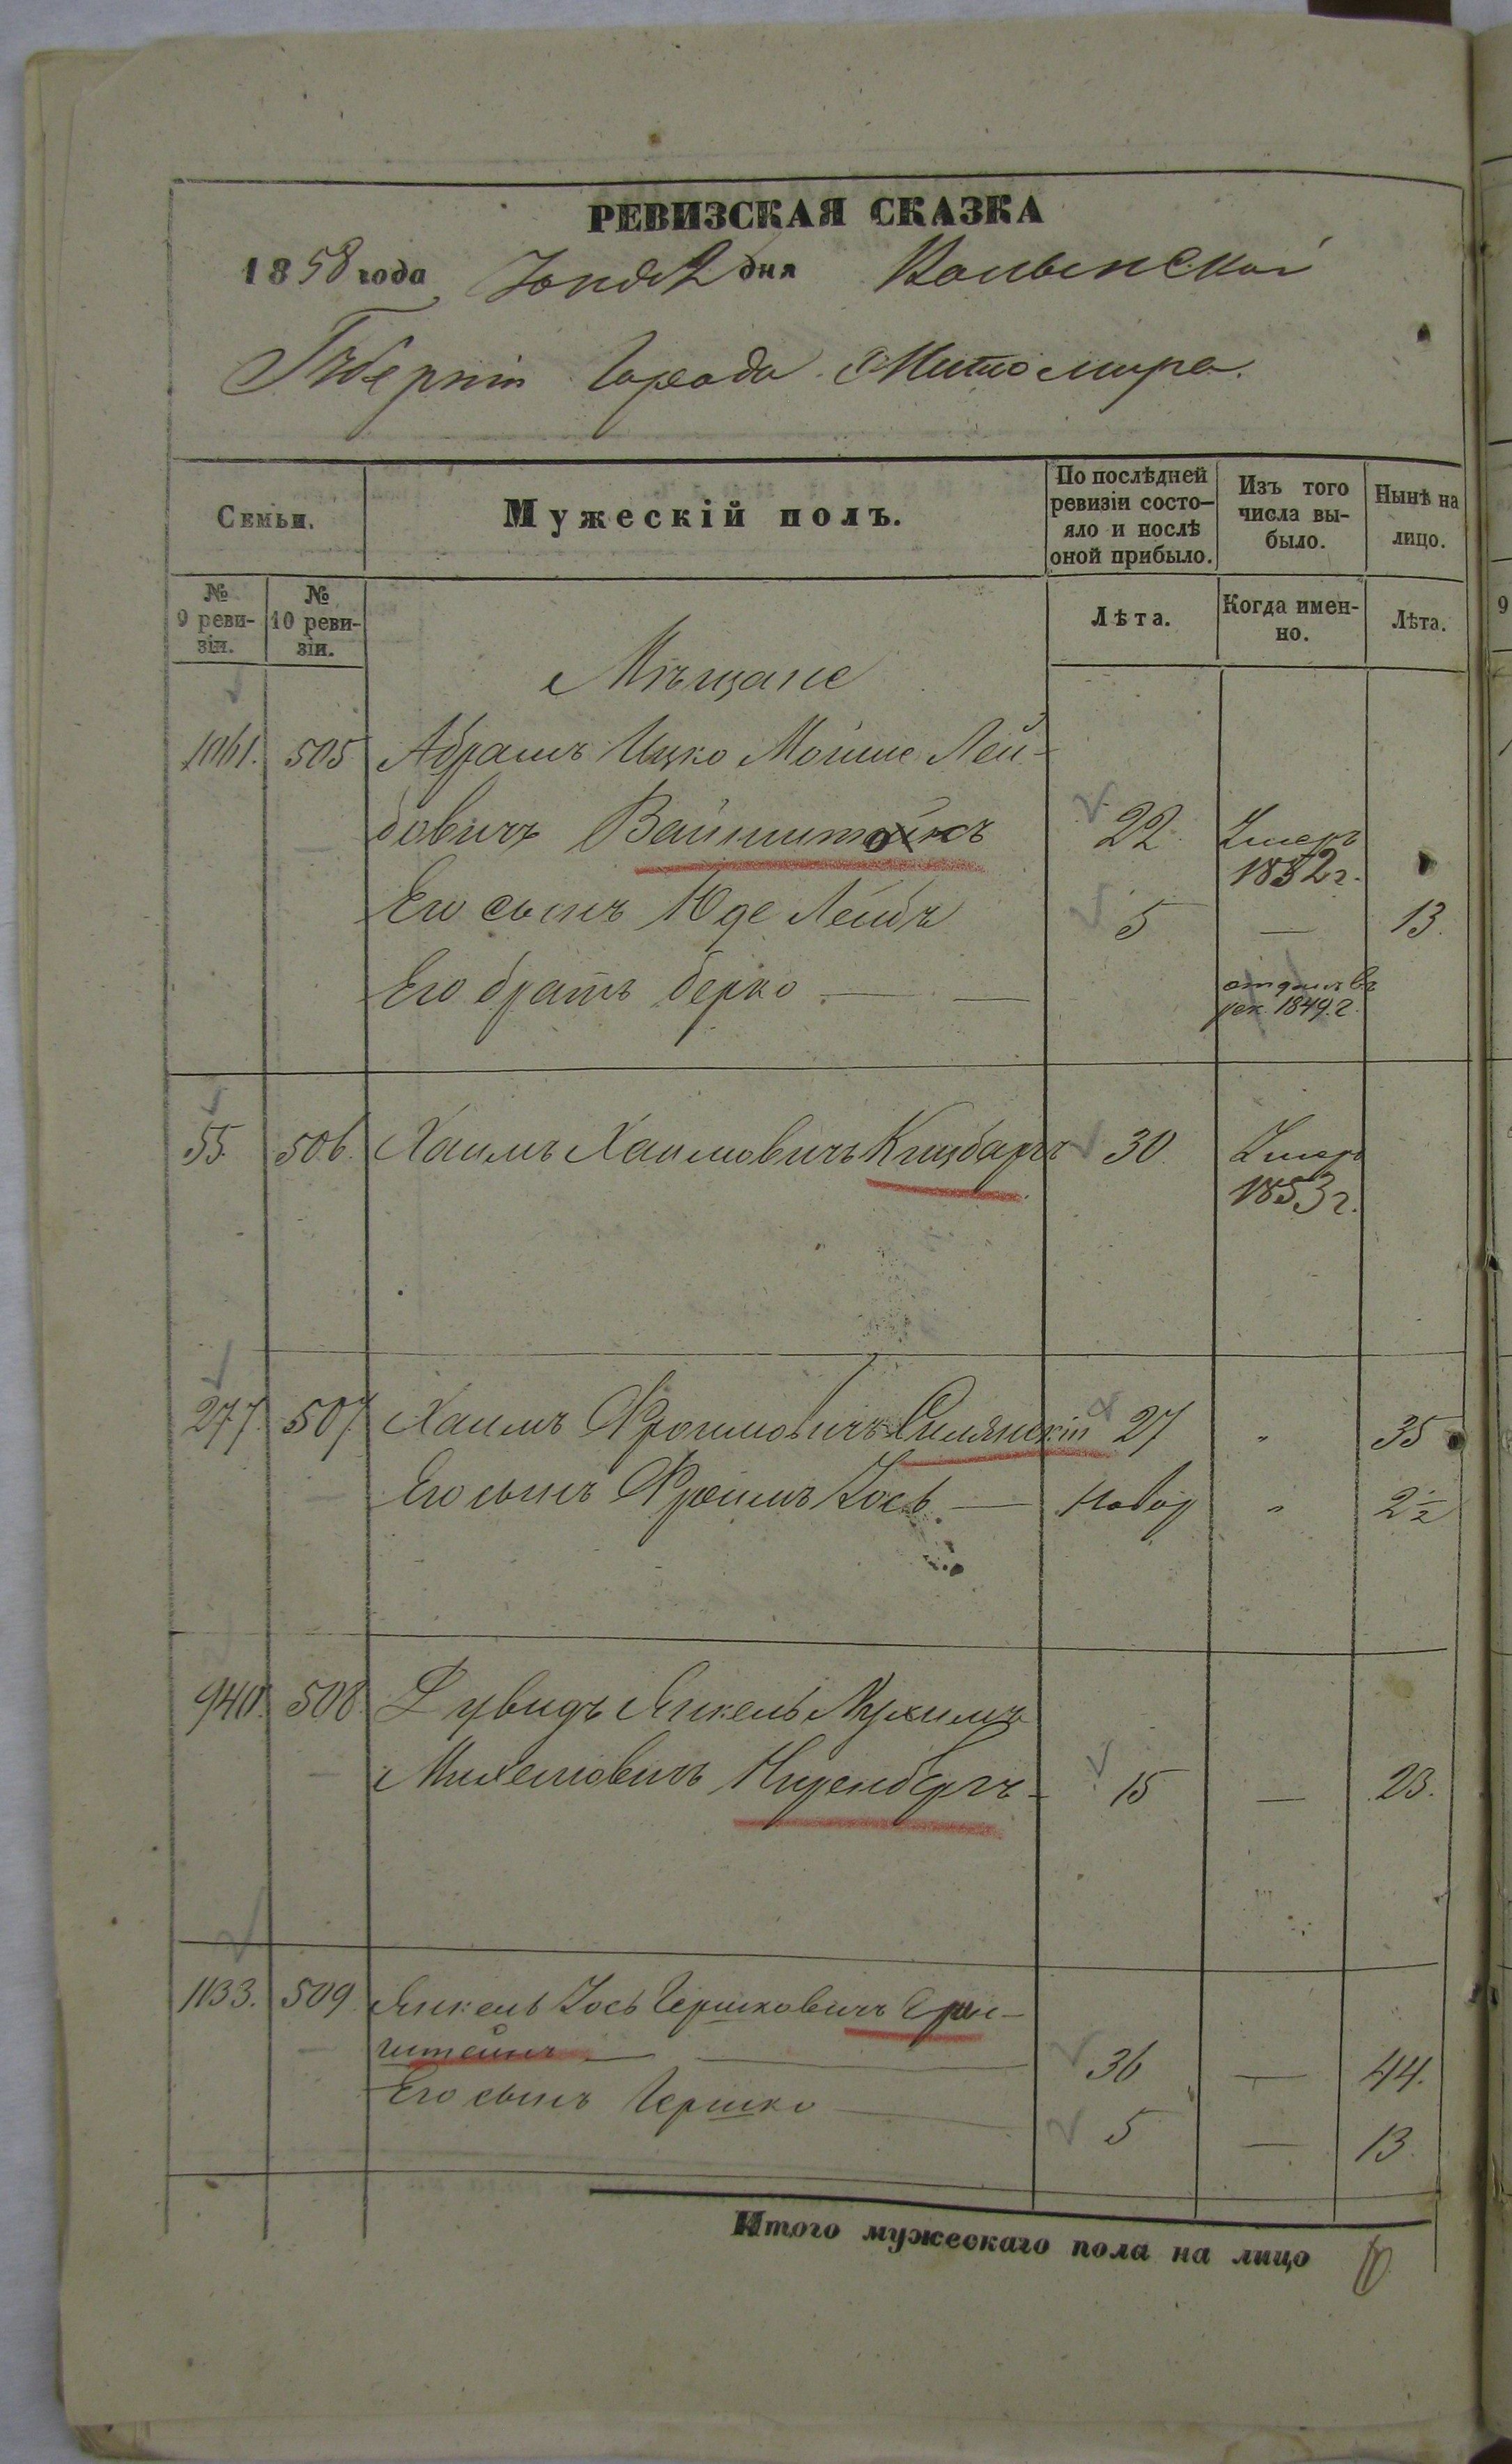 РЕВИЗСКАЯ СКАЗКА
1858 года Юня 2 дня Волынской
Губерніи Города Житомира.
Семьи.
Мужескій полъ.
По послѣдней ревизіи состо-
яло и послѣ оной прибыло.
Изъ того числа вы-
было.
Нынѣ на лицо.
№ 9 реви-
зіи.
№ 10 реви-
зіи.
Лѣта.
Когда имен-
но.
Лѣта.
Мѣщане
1061. 505 Абрамъ Ицко Мойше Лей-
бовичъ 22 Умеръ
1852 г.
Его сынъ Юде Лейбъ 5 — 13.
Его братъ Берко — — отданъ въ
рек. 1849. г.
55. 506. Хаимъ Хаимовичъ 30. Умеръ
1853 г.
277. 507. Хаимъ Фроимовичъ 27 " 35
Его сынъ Фроимъ Іось — новор " 2½
940. 508. Дувидъ Янкель Нухимъ
Михелевичъ Ниренбергъ — 15 — 23.
1133. 509. Янкель Іось Гершковичъ
штейнъ — — 36 — 44.
Его сынъ Гершко — 5 — 13.
Итого мужескаго пола на лицо